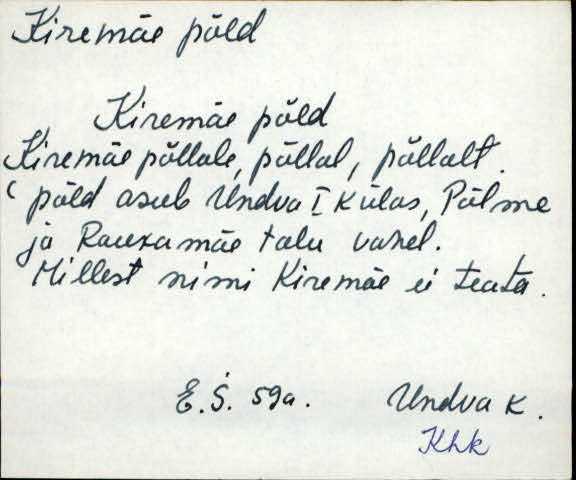 Kiremäe põld
Kiremäe põld
Kiremäe põllale, põllal, põllalt.
põld asub Undva I külas, Põlme
ja Rauxamäe talu vahel.
Millest nimi Kiremäe ei teata.
E.S. 59a. Undva k.
Khk